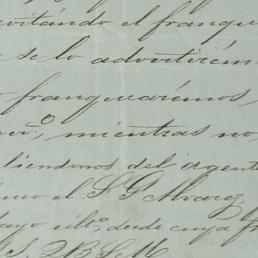 evitando el franqueo
se lo advertirém
franquearémos,
mientras no
liendonos del urgente
el Sr. G. Alvarez,
ayo últº, desde cuya f
S. 2 B. S. M.